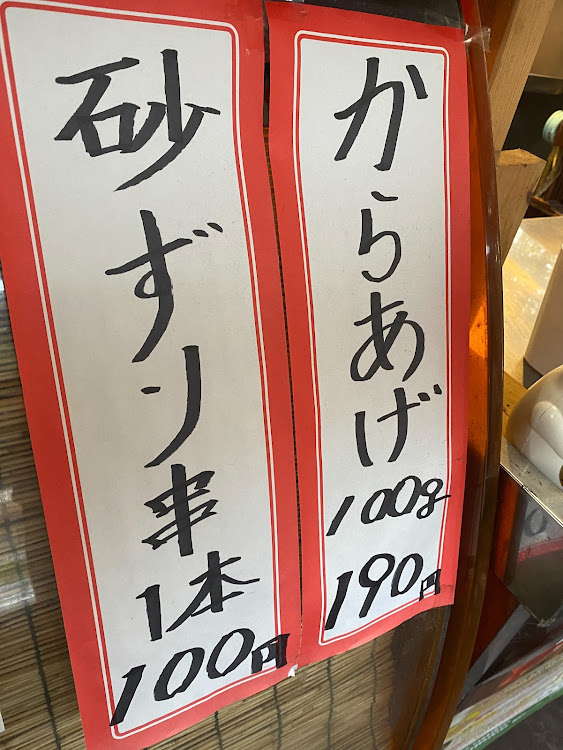 からあげ
100g
190円
砂ずり串
1本
100円